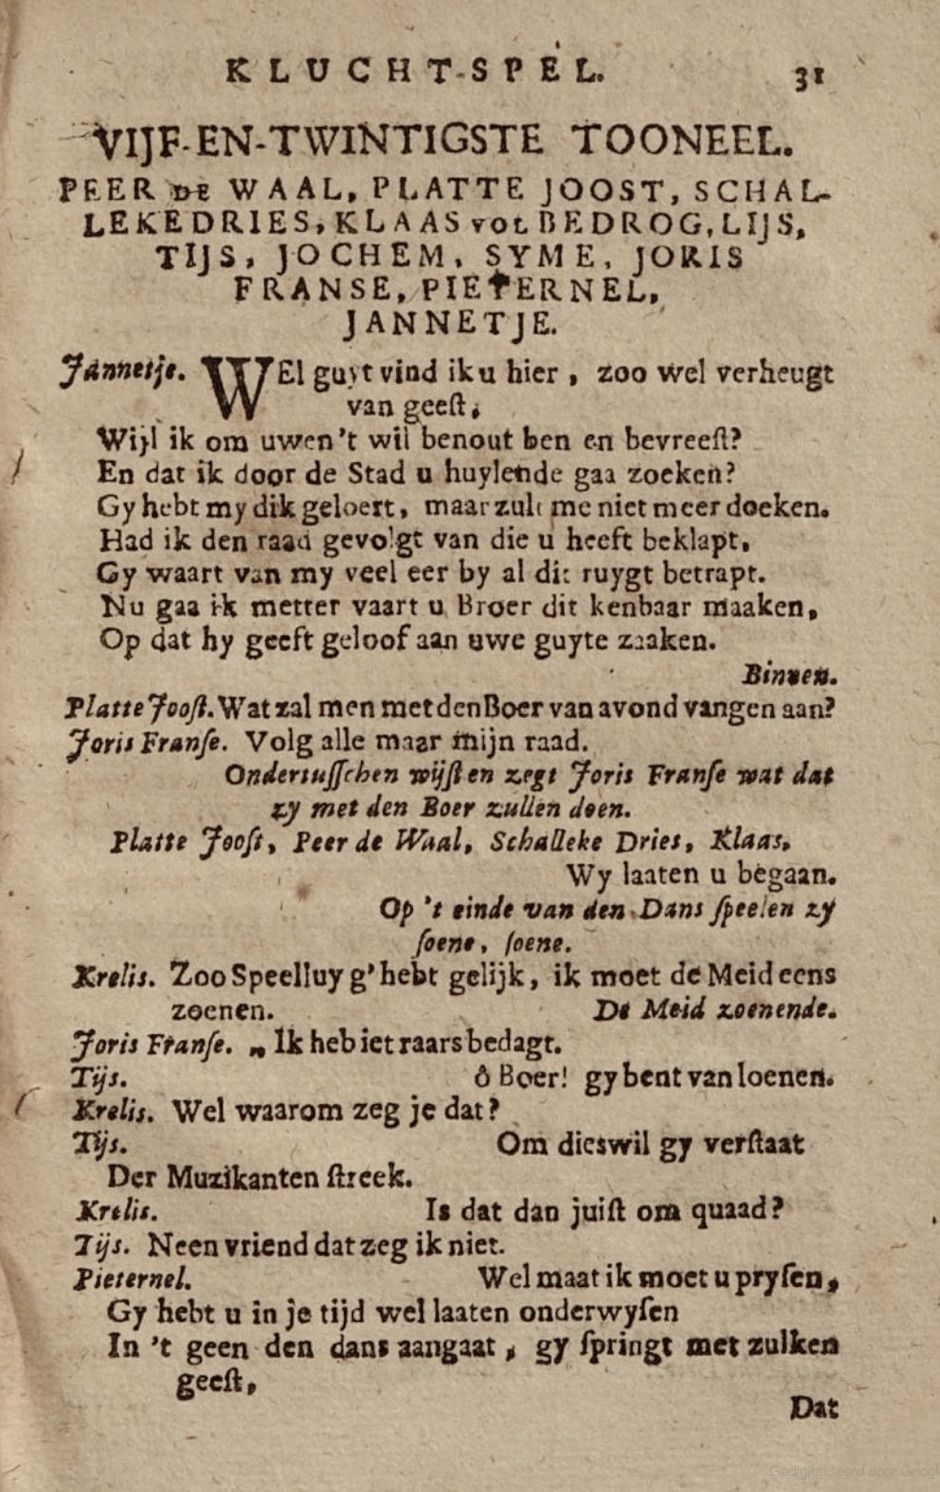 KLUCHT-SPEL. 31
VIJF-EN-TWINTIGSTE TOONEEL.
PEER DE WAAL, PLATTE JOOST, SCHAL-
LEKEDRIES, KLAAS VOL BEDROG, LIJS,
TIJS, JOCHEM, SYME, JORIS
FRANSE, PIETERNEL,
JANNETJE.
Jannetje. WEl guyt vind ik u hier, zoo wel verheugt
van geeſt,
Wijl ik om uwen 't wil benout ben en bevreeſt?
En dat ik door de Stad u huylende gaa zoeken?
Gy hebt my dik geloert, maar zult me niet meer doeken.
Had ik den raad gevolgt van die u heeft beklapt,
Gy waart van my veel eer by al dit ruygt betrapt.
Nu gaa ik metter vaart u Broer dit kenbaar maaken,
Op dat hy geeft geloof aan uwe guyte zaaken.
Binnen.
Platte Jooſt. Wat zal men met den Boer van avond vangen aan?
Joris Franſe. Volg alle maar mijn raad.
Ondertuſſchen wijſt en zegt Joris Franſe wat dat
zy met den Boer zullen doen.
Platte Jooſt, Peer de Waal, Schalleke Dries, Klaas,
Wy laaten u begaan.
Op 't einde van den Dans ſpeelen zy
ſoene, ſoene.
Krelis. Zoo Speelluy g' hebt gelijk, ik moet de Meid eens
zoenen. De Meid zoenende.
Joris Franſe. „ Ik heb iet raars bedagt.
Tijs. ô Boer! gy bent van loenen.
Krelis. Wel waarom zeg je dat?
Tijs. Om dieswil gy verſtaat
Der Muzikanten ſtreek.
Krelis. Is dat dan juiſt om quaad?
Tijs. Neen vriend dat zeg ik niet.
Pieternel. Wel maat ik moet u pryſen,
Gy hebt u in je tijd wel laaten onderwyſen
In 't geen den dans aangaat, gy ſpringt met zulken
geeſt,
Dat
Gedigitaliseerd door Google